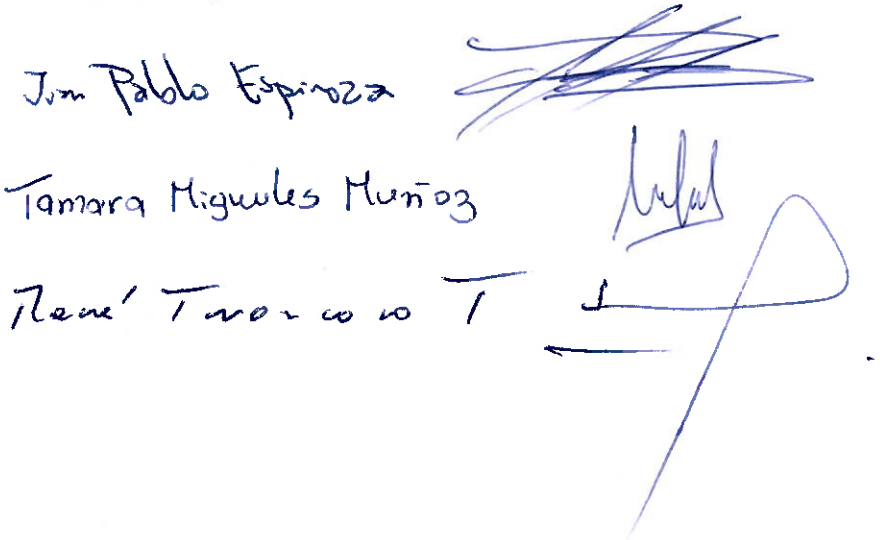 Juan Pablo Espinoza
Tamara Migueles Muñoz
René T